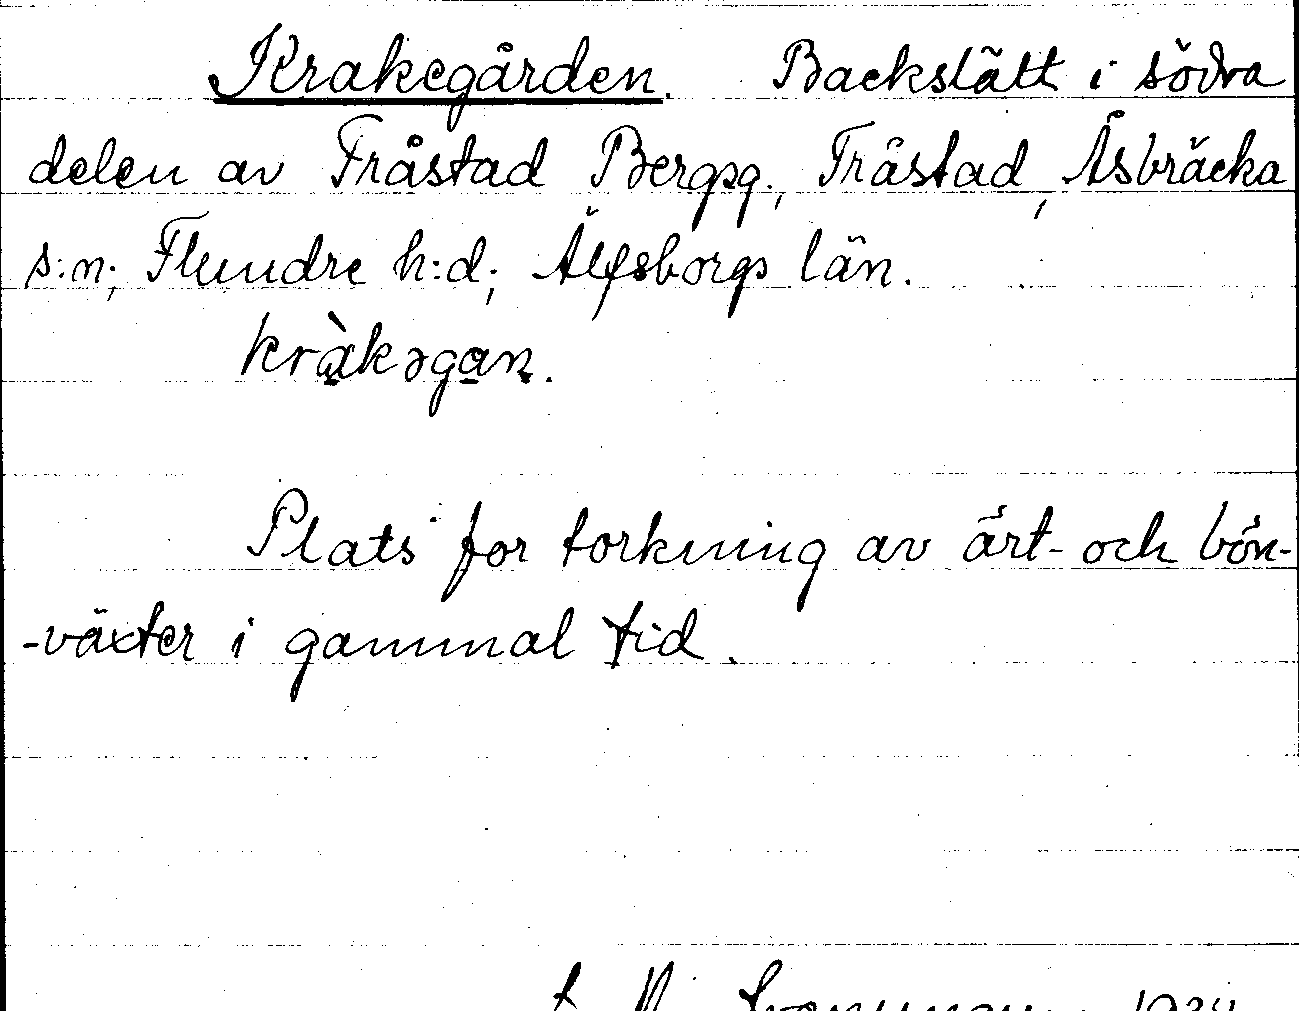 Krakegården. Backslätt i södra
delen av Fråstad Bergsg., Fråstad, Åsbräcka
s:n; Flundre h:d; Älfsborgs län.
kràkəgan.
Plats för torkning av ärt- och bön-
-växter i gammal tid.